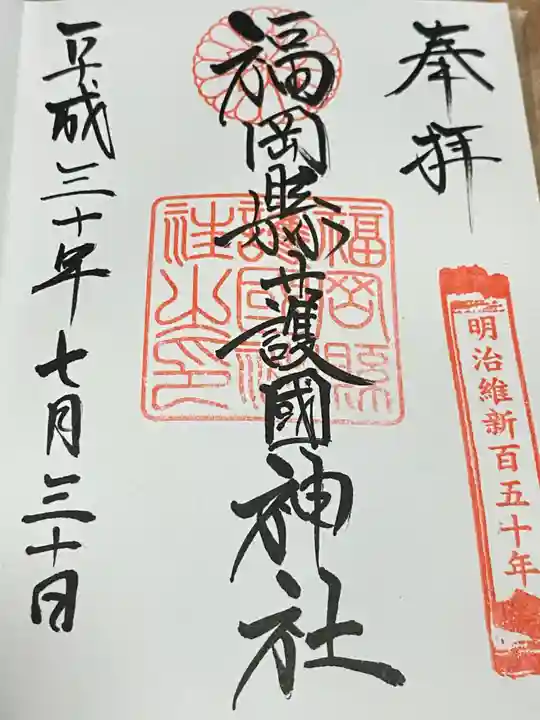 奉拝
明治維新百五十年
福岡縣護國神社
福岡縣護國神社之印
平成三十年七月三十日